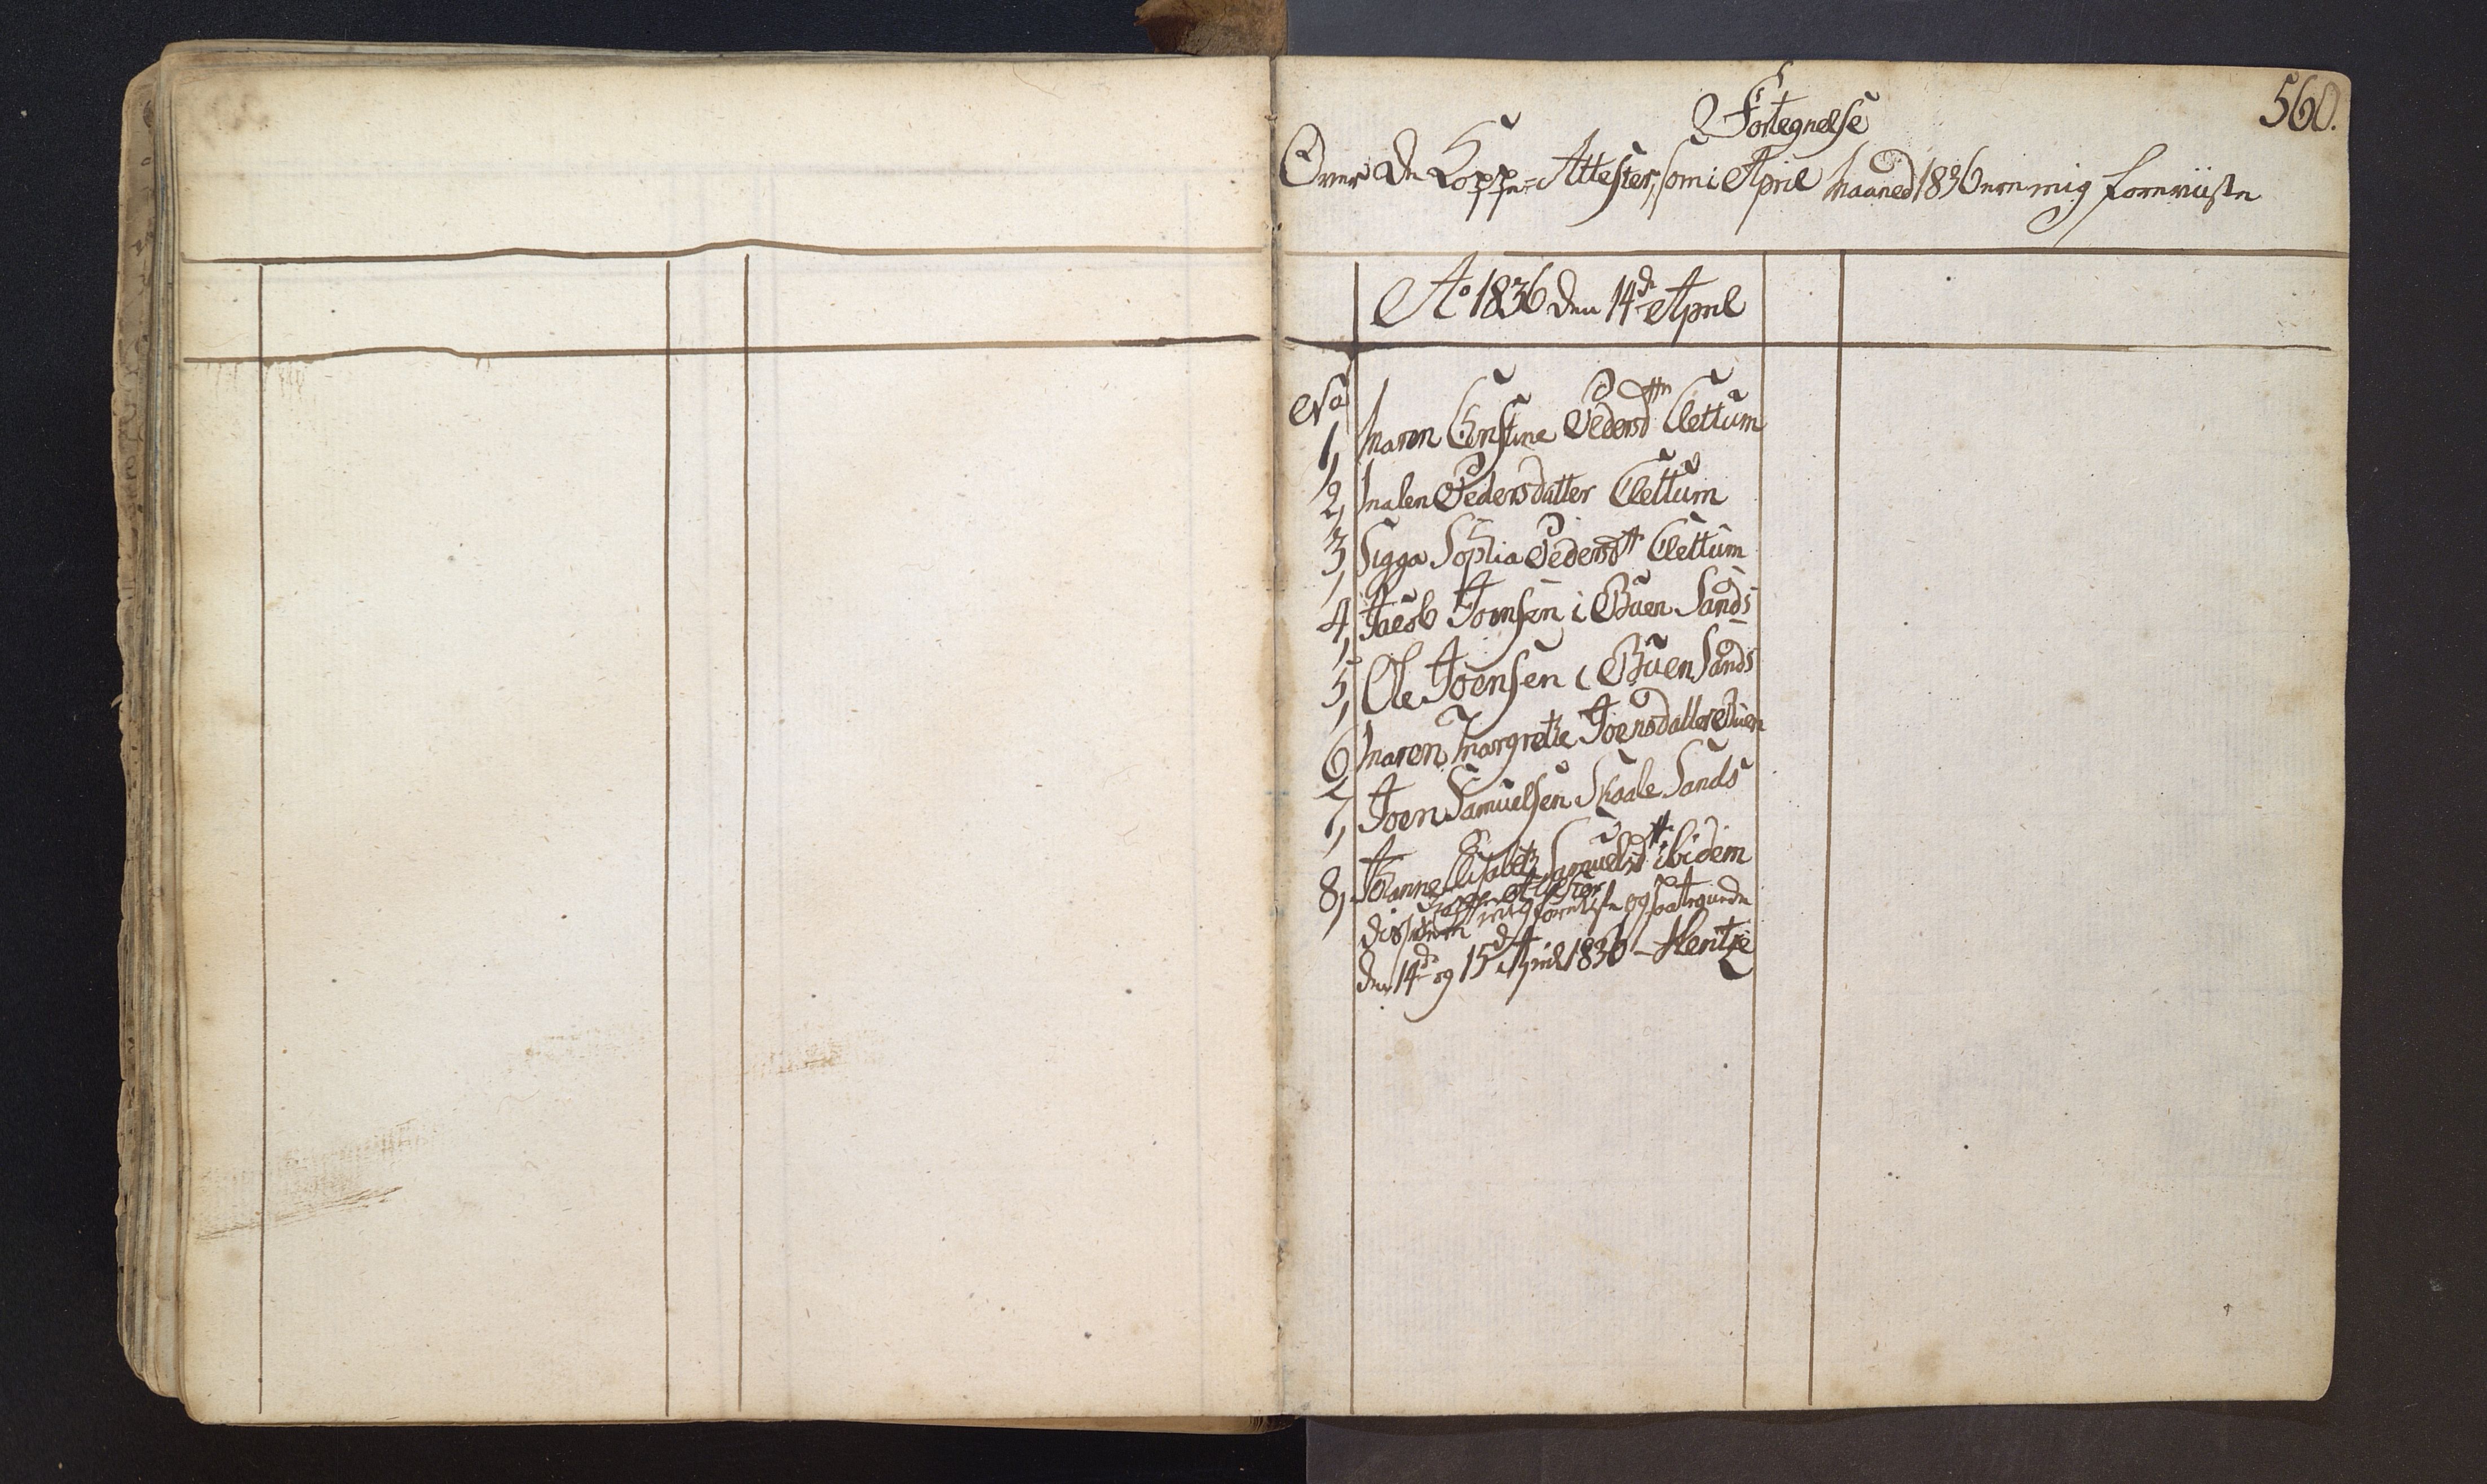 560.
Fortegnelse
Over de Koppe-Attester, som i April Maaned 1836 ere mig foreviiste
Ao 1836 den 14de April
No
1, Maren Christine Pedersdttr Clettum
2, Malen Pedersdatter Clettum
3, Sigga Sophia Pedersdtt Clettum
4, Jacob Joensen i Buen Sands
5, Ole Joensen i Buen Sands
6, Maren Margrethe Joensdatter Buen
7, Joen Samuelsen Skaale Sands
8, Johanne Elisabeth Samuelsdtt ibidem
Koppe Attester
disse ere mig foreviiste og paategnede
den 14de og 15de April 1836 - Hentze